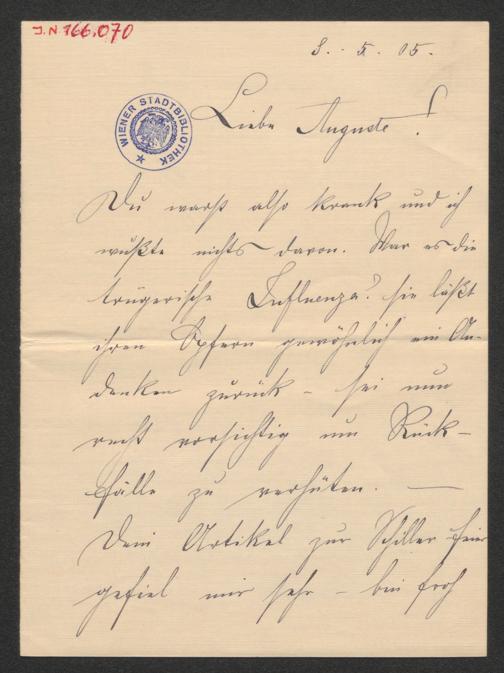 J.N. 166.070
8. 5. 05.
WIENER STADTBIBLIOTHEK
Liebe Auguste!
Du warst also krank und ich
wußte nichts davon. War es die
trügerische Influenza? sie läßt
ihren Opfern gewöhnlich ein An-
denken zurück – sei nun
recht vorsichtig um Rück-
fälle zu verhüten. —
Dein Artikel zur Schiller feier
gefiel mir sehr – bin froh